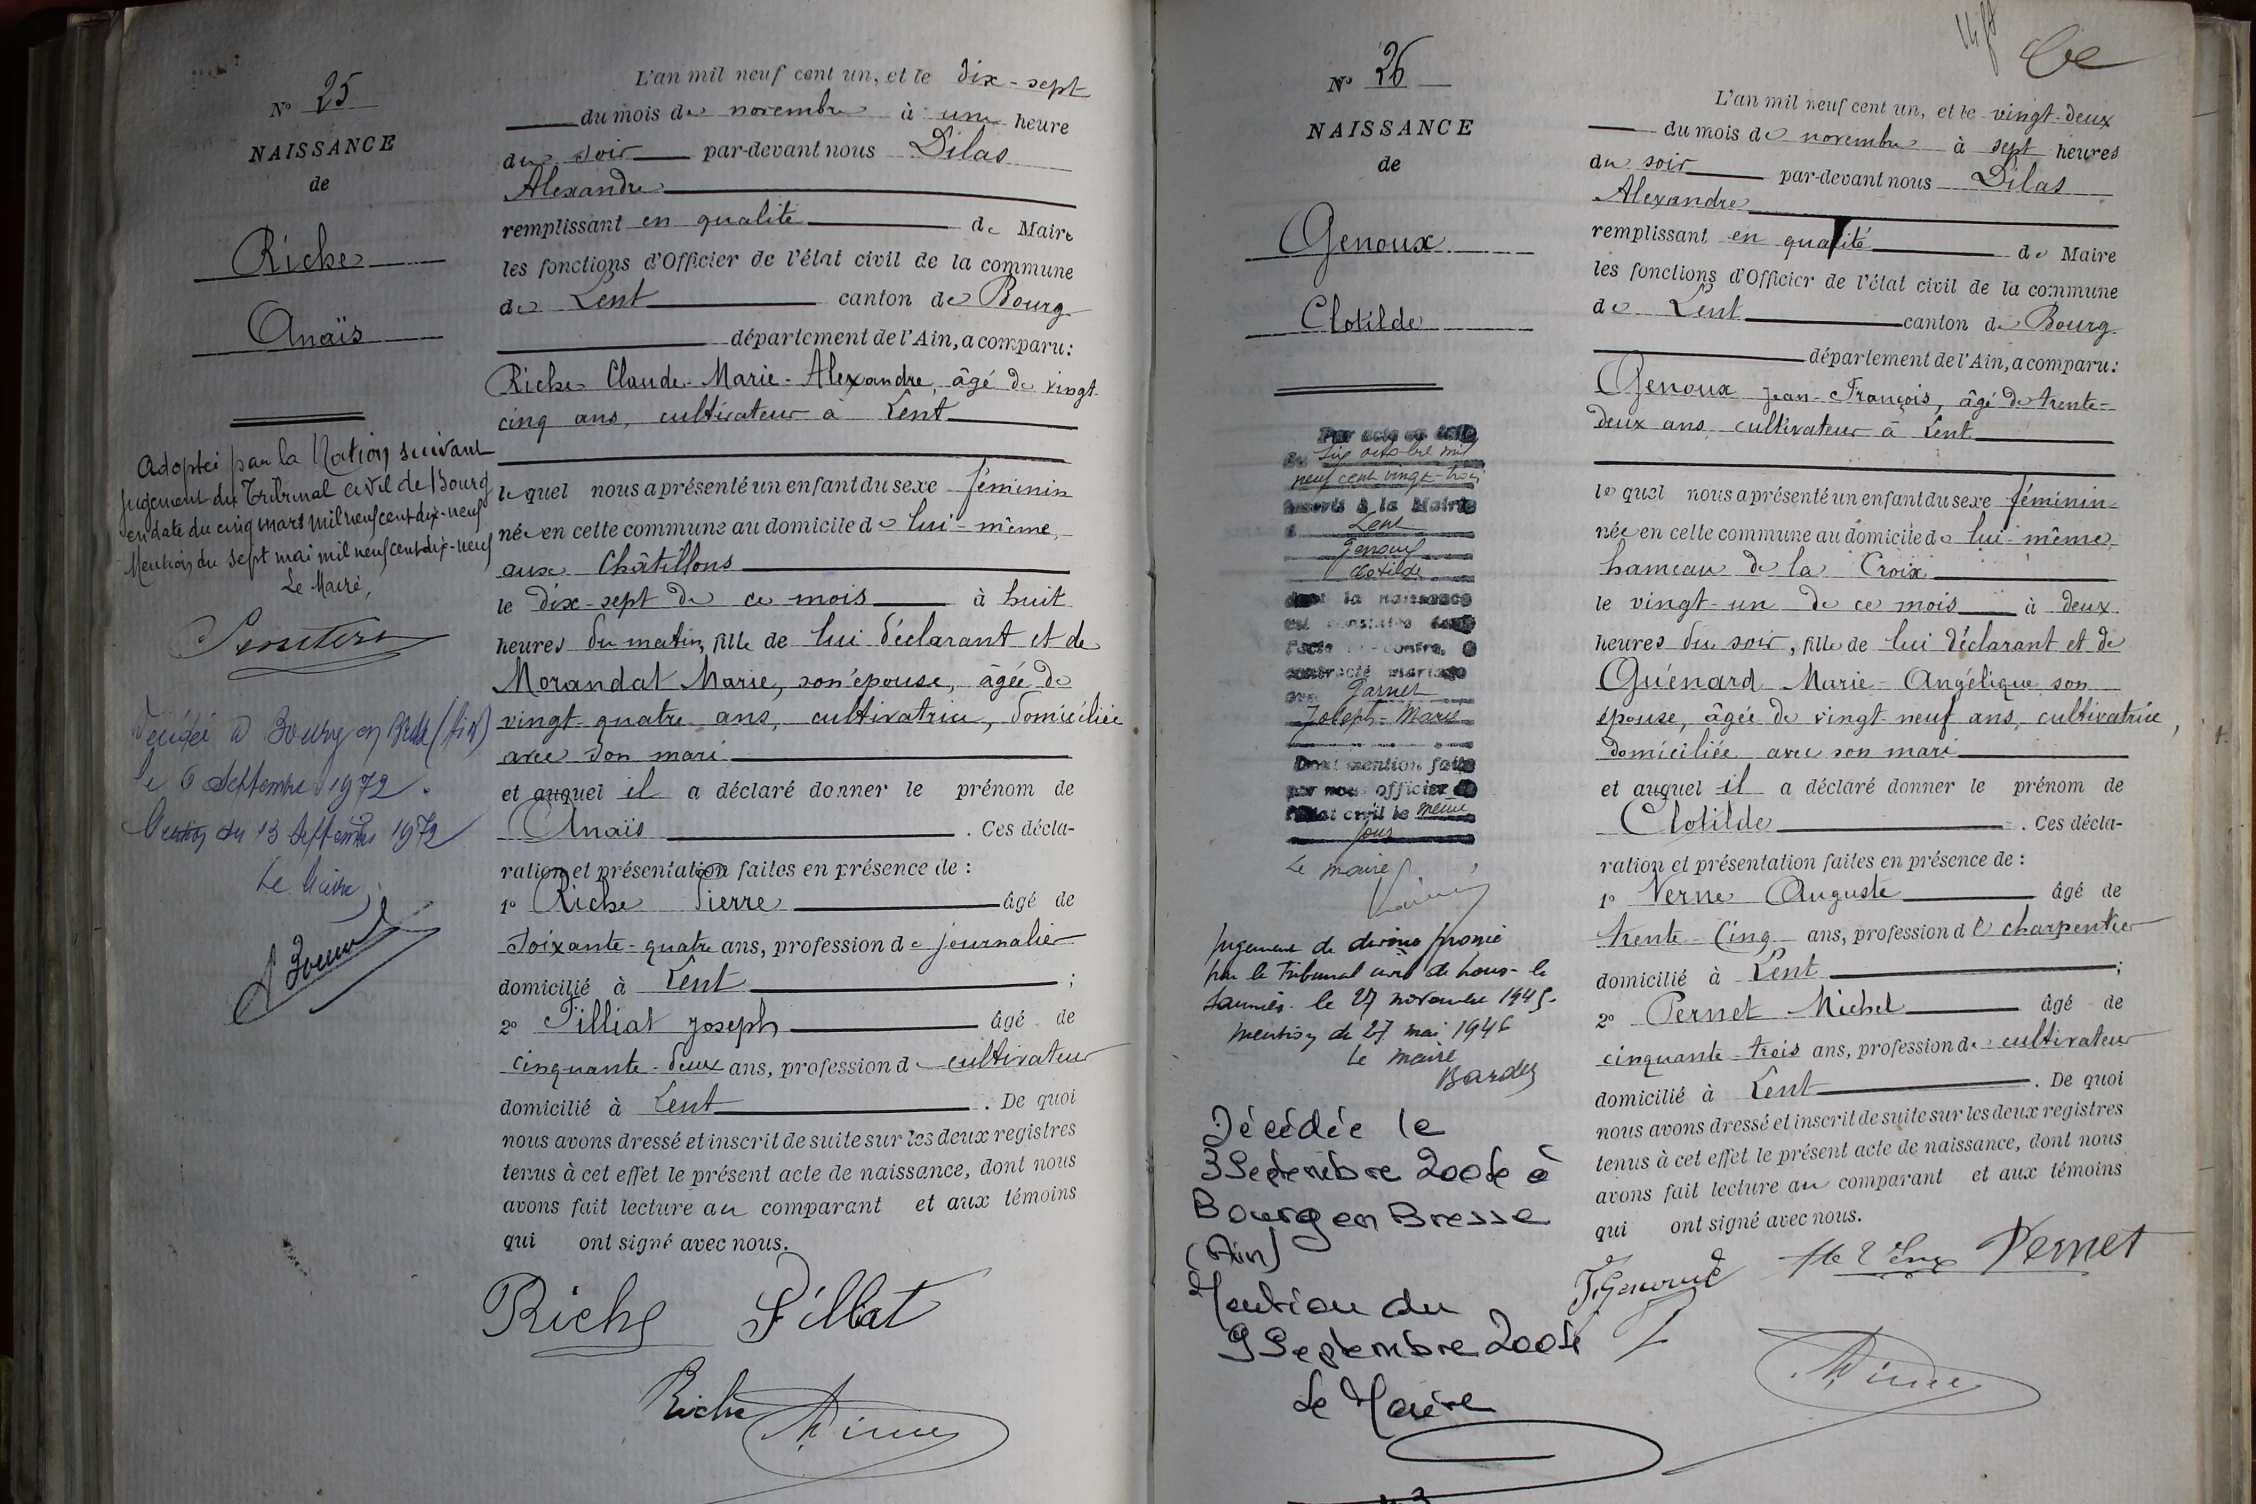 N° 25
NAISSANCE
de
Riche
Anaïs
Adoptée par la Nation suivant
jugement du Tribunal civil de Bourg
en date du cinq mars mil neuf cent dix-neuf
Mention du sept mai mil neuf cent dix-neuf
Le Maire,
Décédée à Bourg en Bresse (Ain)
le 6 Septembre 1972.
Mention du 13 Septembre 1972
Le Maire,
L'an mil neuf cent un, et le dix-sept
du mois de novembre à une heure
du soir par-devant nous Dilas
Alexandre
remplissant en qualité de Maire
les fonctions d'Officier de l'état civil de la commune
de Lent canton de Bourg
département de l'Ain, a comparu:
Riche Claude-Marie-Alexandre, âgé de vingt-
cinq ans, cultivateur à Lent
lequel nous a présenté un enfant du sexe féminin
née en cette commune au domicile de lui-même,
aux Châtillons
le dix-sept de ce mois à huit
heures du matin, fille de lui déclarant et de
Morandat Marie, son épouse, âgée de
vingt-quatre ans, cultivatrice, domiciliée
avec son mari
et auquel il a déclaré donner le prénom de
Anaïs. Ces décla-
ration et présentation faites en présence de:
1° Riche Pierre âgé de
soixante-quatre ans, profession de journalier
domicilié à Lent;
2° Pilliat Joseph âgé de
cinquante-deux ans, profession de cultivateur
domicilié à Lent. De quoi
nous avons dressé et inscrit de suite sur les deux registres
tenus à cet effet le présent acte de naissance, dont nous
avons fait lecture au comparant et aux témoins
qui ont signé avec nous.
Riche Pilliat
Riche
N° 26
NAISSANCE
de
Genoux
Clotilde
Par acte en date
du six octobre mil
neuf cent vingt-trois
inscrit à la Mairie
à Lent
Genoux
Clotilde
dont la naissance
est constatée dans
l'acte ci-contre, a
contracté mariage
avec Pernet
Joseph-Marie
Dont mention faite
par nous officier de
l'état civil le même
jour
Le maire
Jugement de divorce prononcé
par le Tribunal civil de Lons-le
Saunier le 27 novembre 1945.
Mention du 27 mai 1946
Le maire
Décédée le
3 Septembre 2004 à
Bourg en Bresse
(Ain)
Mention du
9 Septembre 2004
Le Maire
L'an mil neuf cent un, et le vingt-deux
du mois de novembre à sept heures
du soir par-devant nous Dilas
Alexandre
remplissant en qualité de Maire
les fonctions d'Officier de l'état civil de la commune
de Lent canton de Bourg
département de l'Ain, a comparu:
Genoux Jean-François, âgé de trente-
deux ans cultivateur à Lent
lequel nous a présenté un enfant du sexe féminin
née en cette commune au domicile de lui-même,
hameau de la Croix
le vingt-un de ce mois à deux
heures du soir, fille de lui déclarant et de
Guénard Marie-Angélique son
épouse, âgée de vingt-neuf ans, cultivatrice,
domiciliée avec son mari
et auquel il a déclaré donner le prénom de
Clotilde. Ces décla-
ration et présentation faites en présence de:
1° Verne Auguste âgé de
trente-cinq ans, profession de charpentier
domicilié à Lent;
2° Pernet Michel âgé de
cinquante-trois ans, profession de cultivateur
domicilié à Lent. De quoi
nous avons dressé et inscrit de suite sur les deux registres
tenus à cet effet le présent acte de naissance, dont nous
avons fait lecture au comparant et aux témoins
qui ont signé avec nous.
Pernet